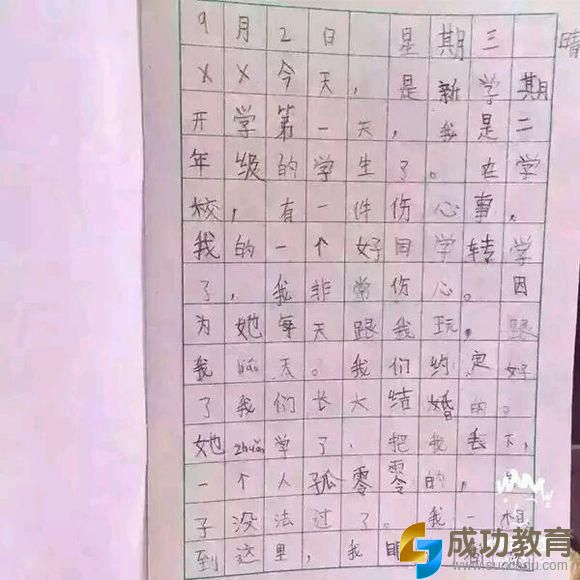 9月2日 星期三 晴
××今天,是新学期
开学第一天,我是二
年级的学生了。在学
校,有一件伤心事。
我的一个好同学转学
了,我非常伤心。因
为她每天跟我玩,跟
我liáo天。我们约定好
了我们长大结婚的。
她zhuǎn学了,把我丢下,
一个人孤零零的,
子没法过了。我一想
到这里,我
成功教育